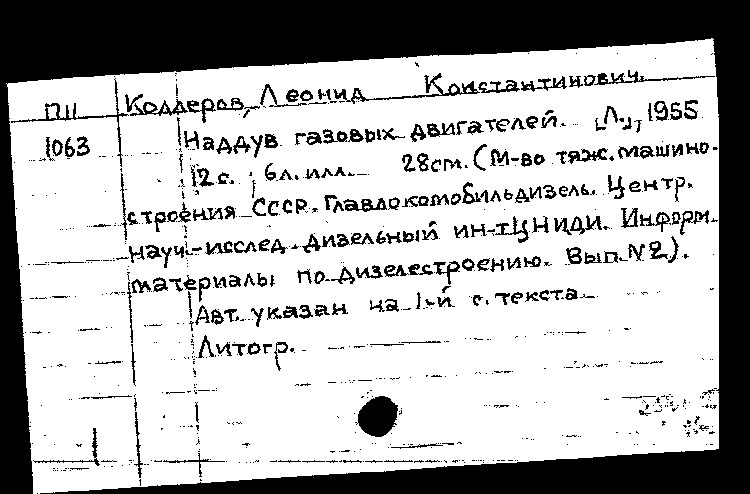 П11 Коллеров, Леонид Константинович.
1063 Наддув газовых двигателей. [Л.], 1955
12 с.; 6 л. илл. 28 см. (М-во тяж. машино-
строения СССР. Главлокомобильдизель. Центр.
науч.-исслед. дизельный ин-т ЦНИДИ. Информ.
материалы по дизелестроению. Вып. №2).
Авт. указан на 1-й с. текста.
Литогр.